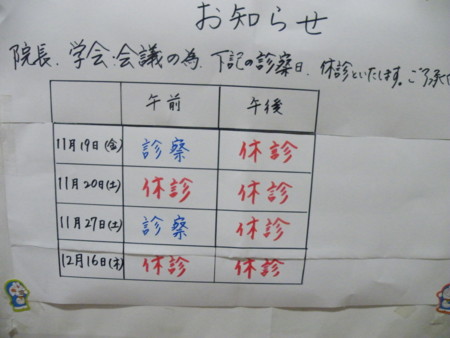 お知らせ
院長、学会・会議の為、下記の診察日、休診といたします。ご了承
午前 午後
11月19日(金) 診察 休診
11月20日(土) 休診 休診
11月27日(土) 診察 休診
12月16日(木) 休診 休診